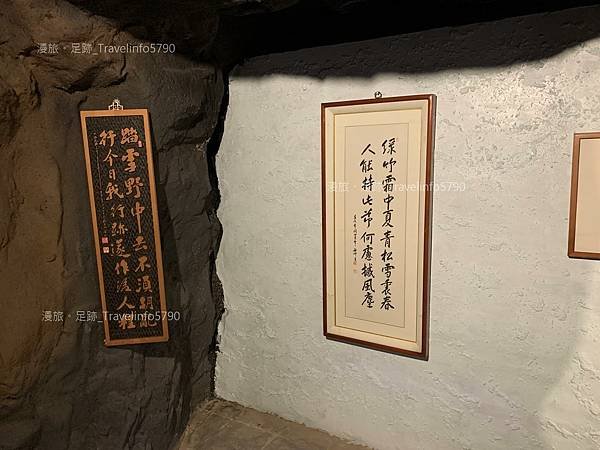 漫旅・足跡_Travelinfo5790
踏雪野中去不須胡亂
行今日我行跡遂作後人程
綠竹霜中夏青松雪裏春
人能持此節何慮撼風塵
漫旅・足跡_Travelinfo5790
漫旅・足跡_Travelinfo5790